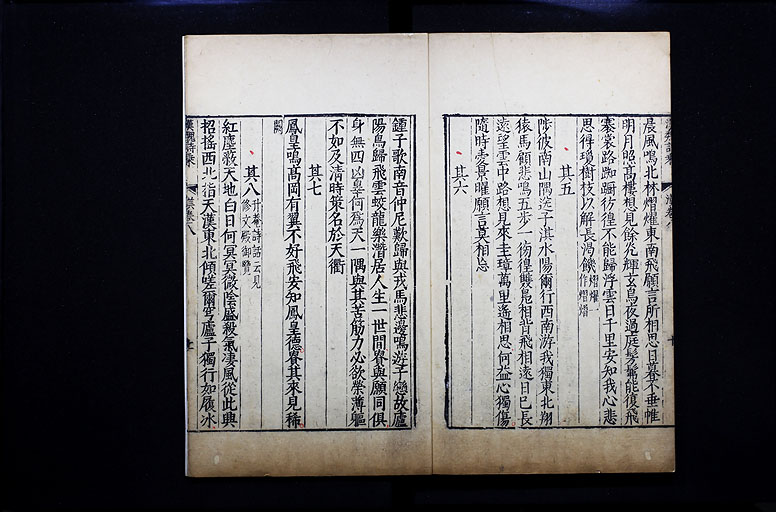 晨風鳴北林熠燿東南飛願言所相思日暮不垂帷
明月照高樓想見餘光輝玄鳥夜過庭髣髴能復飛
褰裳路踟躕彷徨不能歸浮雲日千里安知我心悲
思得瓊樹枝以解長渴饑熠燿一作熠熠
其五
陟彼南山隅送子淇水陽爾行西南游我獨東北翔
轅馬顧悲鳴五步一彷徨雙鳧相背飛相遠日已長
遠望雲中路想見來圭璋萬里遙相思何益心獨傷
隨時愛景曜願言莫相忘
其六
鍾子歌南音仲尼歎歸與戎馬悲邊鳴遊子戀故廬
陽鳥歸飛雲蛟龍樂潛居人生一世間貴與願同俱
身無四凶罪何為天一隅與其苦筋力必欲榮薄軀
不如及清時策名於天衢
其七
鳳皇鳴高岡有翼不好飛安知鳳皇德貴其來見稀
闕
其八升菴詩話云見修文殿御覽
紅塵蔽天地白日何冥冥微陰盛殺氣凄風從此興
招搖西北指天漢東北傾嗟爾穹廬子獨行如履冰